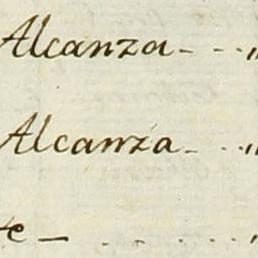 Alcanza - - - "
Alcanza - - - "
te - - - - "